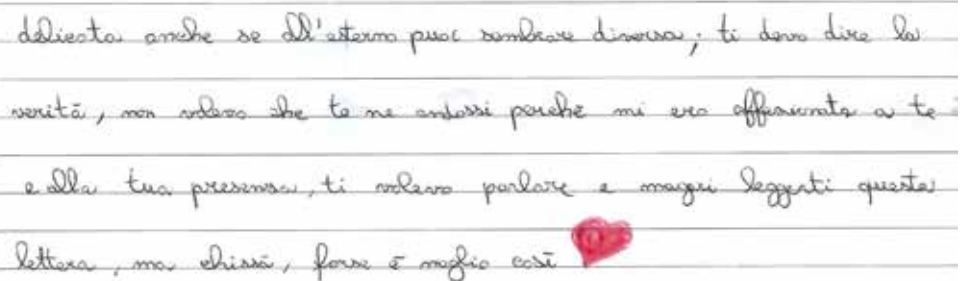 delicata anche se all'esterno puoi sembrare diversa; ti devo dire la
verità, non volevo che te ne andassi perché mi ero affezionata a te
e alla tua presenza, ti volevo parlare e magari leggerti questa
lettera, ma chissà, forse è meglio così